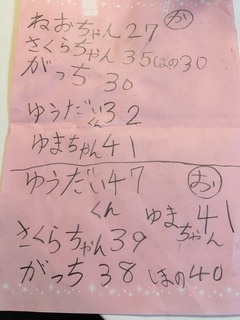 ねおちゃん27 か
さくらちゃん35 ほの30
がっち 30
ゆうだいくん32
ゆまちゃん41
ゆうだいくん47 お
ゆまちゃん41
さくらちゃん39
がっち 38 ほの40